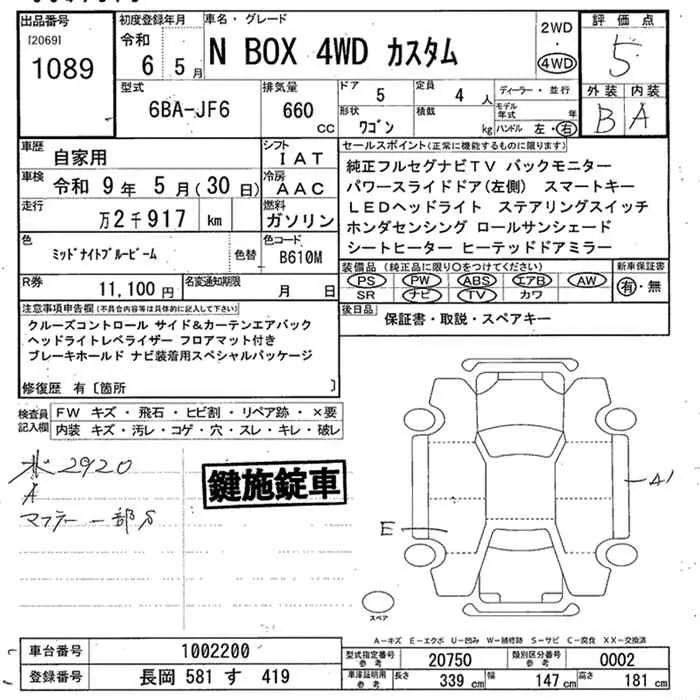 出品番号
[2069]
1089
初度登録年月
令和
6 5月
車名・グレード
N BOX 4WD カスタム
2WD
・
4WD
評価点
5
外装 内装
B A
型式
6BA-JF6
排気量
660 cc
ドア
5
定員
4 人
形状
ワゴン
積載
kg
ディーラー・並行
モデル年式 年
ハンドル 左・右
車歴
自家用
シフト
IAT
車検
令和 9年 5月(30日)
冷房
AAC
走行
万2千917 km
燃料
ガソリン
色
ミッドナイトブルービーム
色替
色コード
B610M
R券
11,100円
名変通知期限
月 日
セールスポイント(正常に機能するものに限ります)
純正フルセグナビTV バックモニター
パワースライドドア(左側) スマートキー
LEDヘッドライト ステアリングスイッチ
ホンダセンシング ロールサンシェード
シートヒーター ヒーテッドドアミラー
装備品(純正品に限り○をつけてください)
新車保証書
PS PW ABS エアB AW
有・無
SR ナビ TV カワ
後日品
保証書・取説・スペアキー
注意事項申告欄(不具合内容等は具体的に記入して下さい)
クルーズコントロール サイド&カーテンエアバック
ヘッドライトレベライザー フロアマット付き
ブレーキホールド ナビ装着用スペシャルパッケージ
修復歴 有〔箇所 〕
検査員記入欄
FW キズ・飛石・ヒビ割・リペア跡・×要
内装 キズ・汚レ・コゲ・穴・スレ・キレ・破レ
2920
A
マフラー一部S
鍵施錠車
A1
E
スペア
A-キズ E-エクボ U-凹み W-補修跡 S-サビ C-腐食 XX-交換済
車台番号
1002200
登録番号
長岡 581 す 419
型式指定番号
参考
20750
類別区分番号
参考
0002
車庫証明用
参考
長さ
339 cm
幅
147 cm
高さ
181 cm